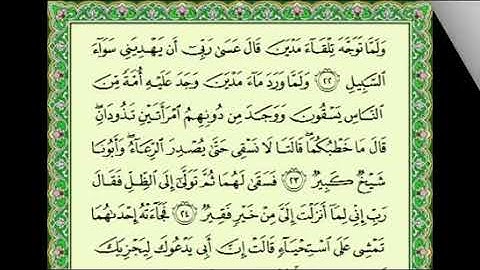 وَلَمَّا تَوَجَّهَ تِلْقَآءَ مَدْيَنَ قَالَ عَسَىٰ رَبِّىٓ أَن يَهْدِيَنِى سَوَآءَ
ٱلسَّبِيلِ ٢٢ وَلَمَّا وَرَدَ مَآءَ مَدْيَنَ وَجَدَ عَلَيْهِ أُمَّةً مِّنَ
ٱلنَّاسِ يَسْقُونَ وَوَجَدَ مِن دُونِهِمُ ٱمْرَأَتَيْنِ تَذُودَانِ ۖ
قَالَ مَا خَطْبُكُمَا ۖ قَالَتَا لَا نَسْقِى حَتَّىٰ يُصْدِرَ ٱلرِّعَآءُ ۖ وَأَبُونَا
شَيْخٌ كَبِيرٌ ٢٣ فَسَقَىٰ لَهُمَا ثُمَّ تَوَلَّىٰٓ إِلَى ٱلظِّلِّ فَقَالَ
رَبِّ إِنِّى لِمَآ أَنزَلْتَ إِلَىَّ مِنْ خَيْرٍ فَقِيرٌ ٢٤ فَجَآءَتْهُ إِحْدَىٰهُمَا
تَمْشِى عَلَى ٱسْتِحْيَآءٍ قَالَتْ إِنَّ أَبِى يَدْعُوكَ لِيَجْزِيَكَ